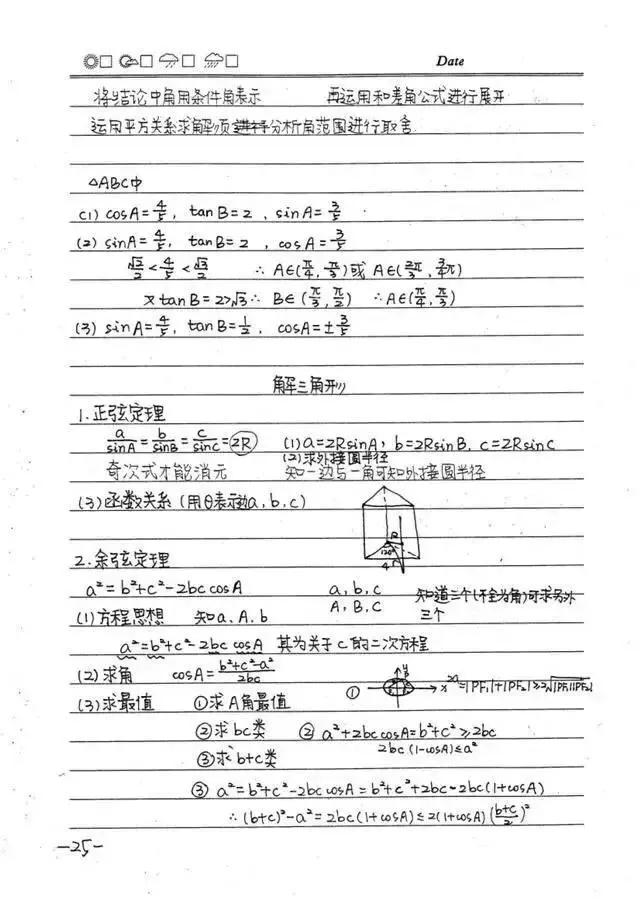 Date
将结论中角用条件角表示 再运用和差角公式进行展开
运用平方关系求解须分析角范围进行取舍
△ABC中
(1) cosA=4/5, tanB=2, sinA=3/5
(2) sinA=4/5, tanB=2, cosA=3/5
√2/2<4/5<√3/2 ∴A∈(π/4, π/3)或A∈(2π/3, 3/4π)
又tanB=2>√3∴B∈(π/3, π/2) ∴A∈(π/4, π/3)
(3) sinA=4/5, tanB=1/2, cosA=±3/5
解三角形
1.正弦定理
a/sinA=b/sinB=c/sinC=2R (1)a=2RsinA, b=2RsinB, c=2RsinC
(2)求外接圆半径
奇次式才能消元 知一边与一角可知外接圆半径
(3)函数关系(用θ表示a,b,c)
R
120°
4
2.余弦定理
a²=b²+c²-2bccosA a,b,c 知道三个(不全为角)可求另外
(1)方程思想 知a,A,b A,B,C 三个
a²=b²+c²-2bccosA 其为关于c的二次方程
(2)求角 cosA=(b²+c²-a²)/2bc
y
(3)求最值 ①求A角最值 ① x 2a=|PF₁|+|PF₂|≥2√|PF₁||PF₂|
②求bc类 ② a²+2bccosA=b²+c²≥2bc
2bc(1-cosA)≤a²
③求b+c类
③ a²=b²+c²-2bccosA=b²+c²+2bc-2bc(1+cosA)
∴(b+c)²-a²=2bc(1+cosA)≤2(1+cosA)((b+c)/2)²
-25-